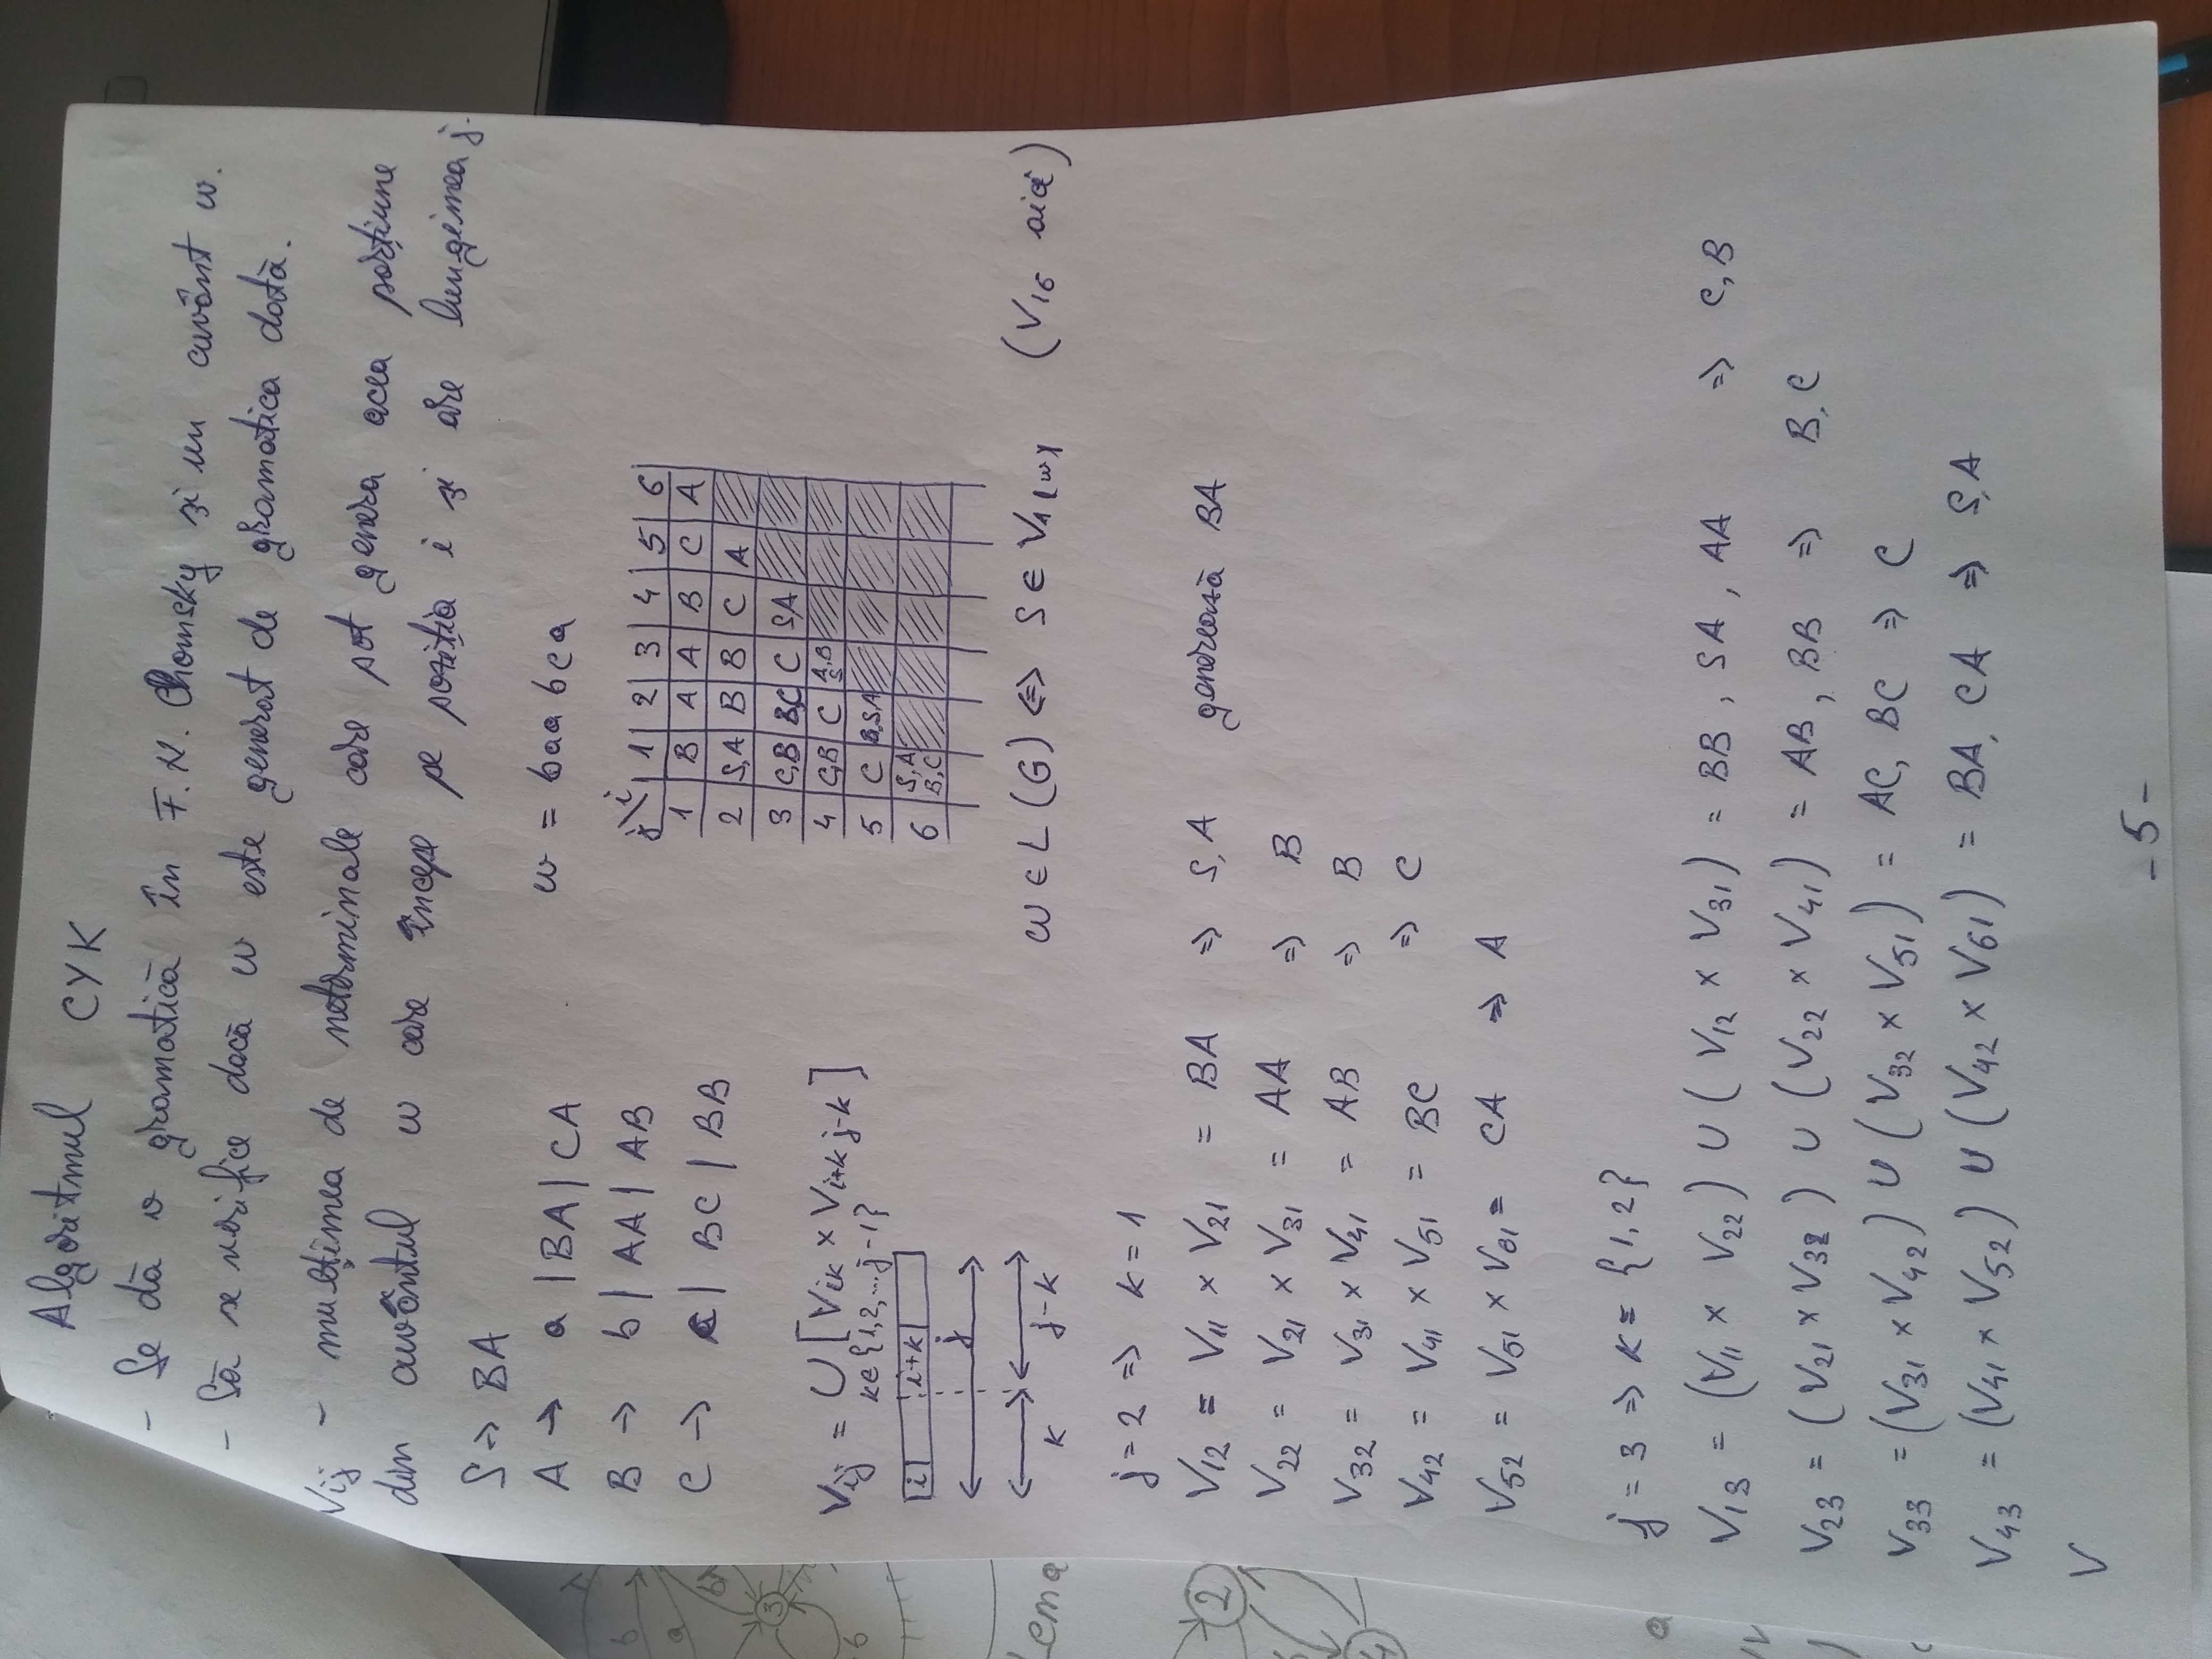 Algoritmul CYK
- Se dă o gramatică în F.N. Chomsky și un cuvânt w.
- Să se verifice dacă w este generat de gramatica dată.
Vij - mulțimea de neterminale care pot genera acea porțiune
din cuvântul w care începe pe poziția i și are lungimea j.
S → BA
A → a | BA | CA
w = baabca
B → b | AA | AB
C → c | BC | BB
j \ i | 1 | 2 | 3 | 4 | 5 | 6
1 | B | A | A | B | C | A
2 | S,A | B | B | C | A
3 | C,B | B,C | C | S,A
4 | C,B | C | A,B S
5 | C | B,S,A
6 | S,A B,C
Vij = ∪ [Vik × Vi+k j-k]
k∈{1,2,...j-1}
i i+k
j
k j-k
w ∈ L(G) <=> S ∈ V1|w| (V16 aici)
j = 2 => k = 1
V12 = V11 × V21 = BA => S,A generează BA
V22 = V21 × V31 = AA => B
V32 = V31 × V41 = AB => B
V42 = V41 × V51 = BC => C
V52 = V51 × V61 = CA => A
j = 3 => k = {1,2}
V13 = (V11 × V22) ∪ (V12 × V31) = BB, SA, AA => C,B
V23 = (V21 × V32) ∪ (V22 × V41) = AB, BB => B,C
V33 = (V31 × V42) ∪ (V32 × V51) = AC, BC => C
V43 = (V41 × V52) ∪ (V42 × V61) = BA, CA => S,A
V
- 5 -
Lema
b
a
b
3
6
2
4
a